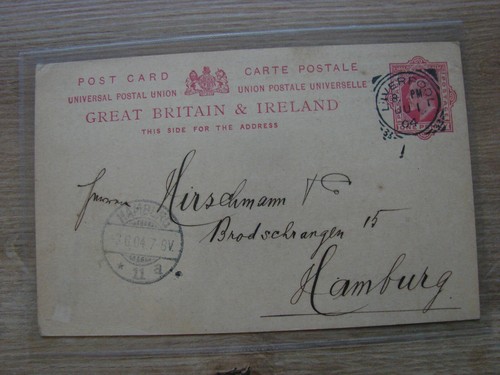 POST CARD CARTE POSTALE
UNIVERSAL POSTAL UNION UNION POSTALE UNIVERSELLE
GREAT BRITAIN & IRELAND
THIS SIDE FOR THE ADDRESS
LIVERPOOL
PM
04
Herren Hirschmann &
Brodschrangen 15
Hamburg
HAMBURG
7.6.04.7-8V.
* 11 a